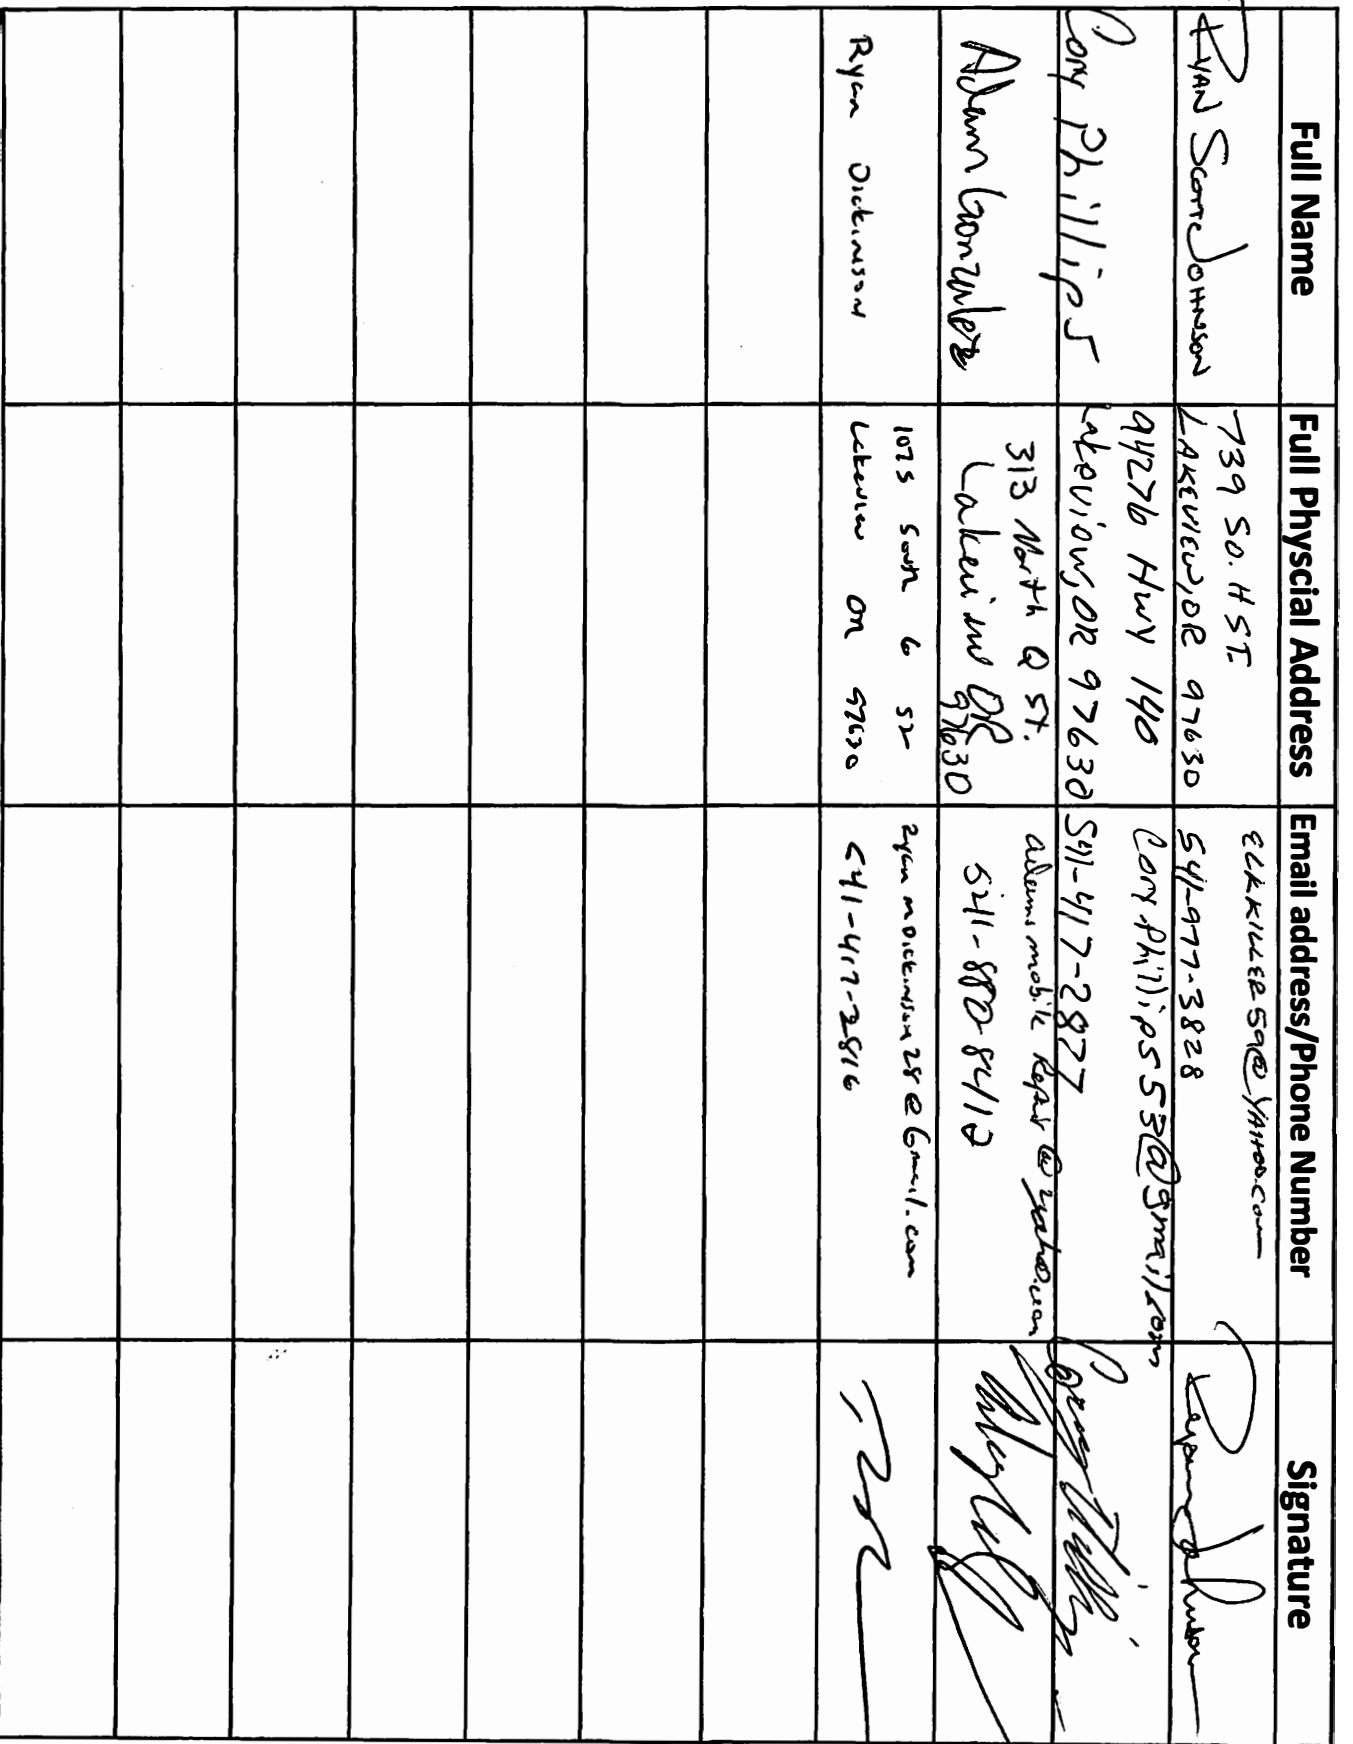 Full Name Full Physcial Address Email address/Phone Number Signature
RYAN SCOTT JOHNSON
739 SO. H ST.
LAKEVIEW, OR 97630
ELKKILLER59@YAHOO.COM
541-977-3828
Cory Phillips
94276 HWY 140
Lakeview, OR 97630
CoryPhillips553@gmail.com
541-417-2877
Adam Gonzalez
313 North Q St.
Lakeview OR
97630
adamsmobileRepair@yahoo.com
541-880-8412
Ryan Dickinson
1075 South G St
Lakeview OR 97630
ryanmdickinson28@Gmail.com
541-417-2816